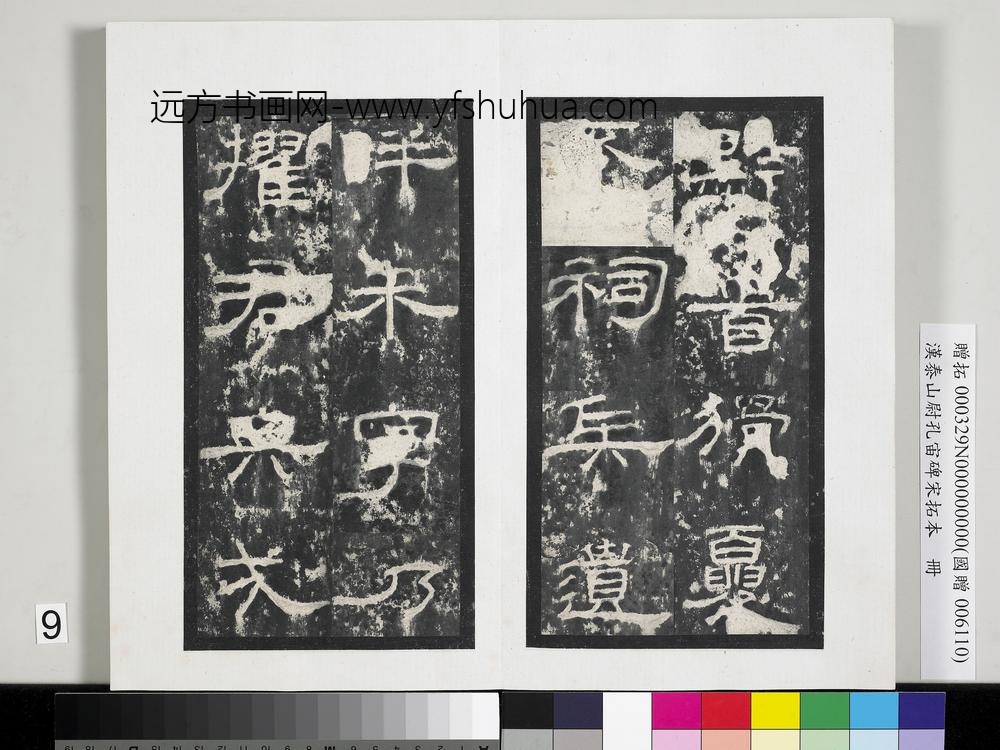 远方书画网-www.yfshuhua.com
黔首猾夏
不祠兵遺
畔未寧乃
擢君典戎
贈拓 000329N000000000(國贈 006110)
漢泰山尉孔宙碑宋拓本 冊
9